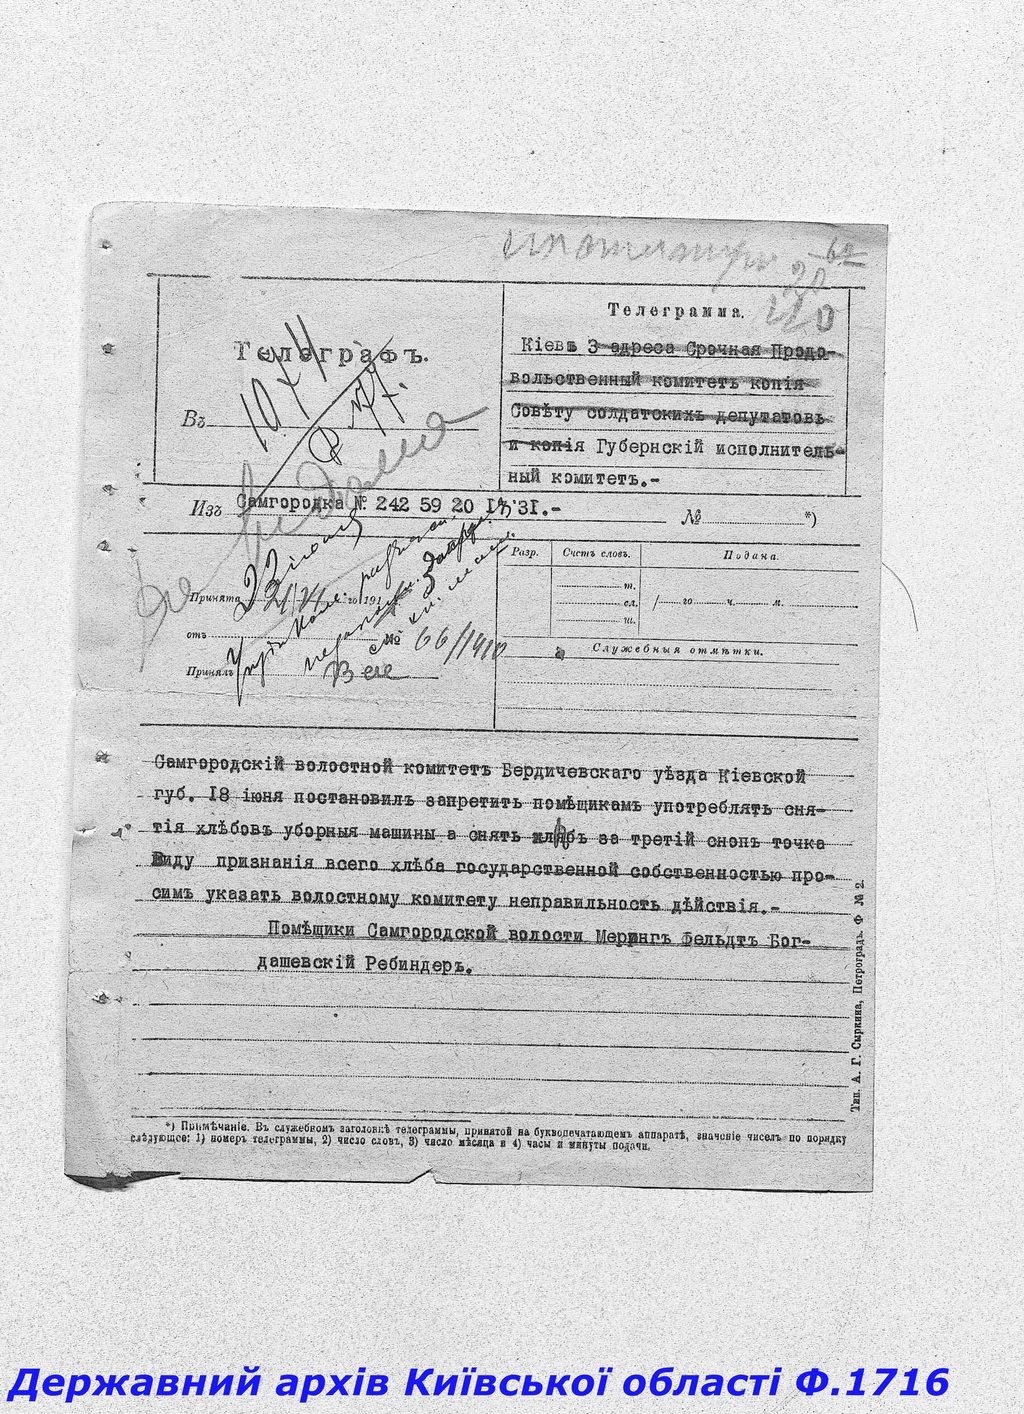 Телеграмма.
Кіевъ 3 адреса Срочная Продо-
вольственный комитетъ копія
Совѣту солдатскихъ депутатовъ
и копія Губернскій исполнитель-
ный комитетъ.-
Телеграфъ.
Въ
Изъ Самгородка № 242 59 20 13 31.-
№ *)
Разр. Счетъ словъ. Подана.
т.
сл. го ч. м.
ш.
Принята 21/VI го 191
отъ № 66/1910
Принялъ
Служебныя отмѣтки.
Самгородскій волостной комитетъ Бердичевскаго уѣзда Кіевской
губ. 18 іюня постановилъ запретить помѣщикамъ употреблять сня-
тія хлѣбовъ уборныя машины а снять хлѣбъ за третій снопъ точка
Виду признанія всего хлѣба государственной собственностью про-
симъ указать волостному комитету неправильность дѣйствія.-
Помѣщики Самгородской волости Мерингъ Фельдтъ Бог-
дашевскій Ребиндеръ.
Тип. А. Г. Сыркина, Петроградъ. Ф № 2.
*) Примѣчаніе. Въ служебномъ заголовкѣ телеграммы, принятой на буквопечатающемъ аппаратѣ, значеніе чиселъ по порядку
слѣдующее: 1) номеръ телеграммы, 2) число словъ, 3) число мѣсяца и 4) часы и минуты подачи.
Державний архів Київської області Ф.1716